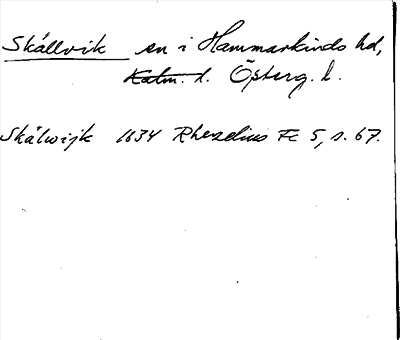 Skällvik en i Hammarkinds hd,
Kalm. l. Österg. l.
Skälwijk 1634 Rhezelius Fc 5, s. 67.